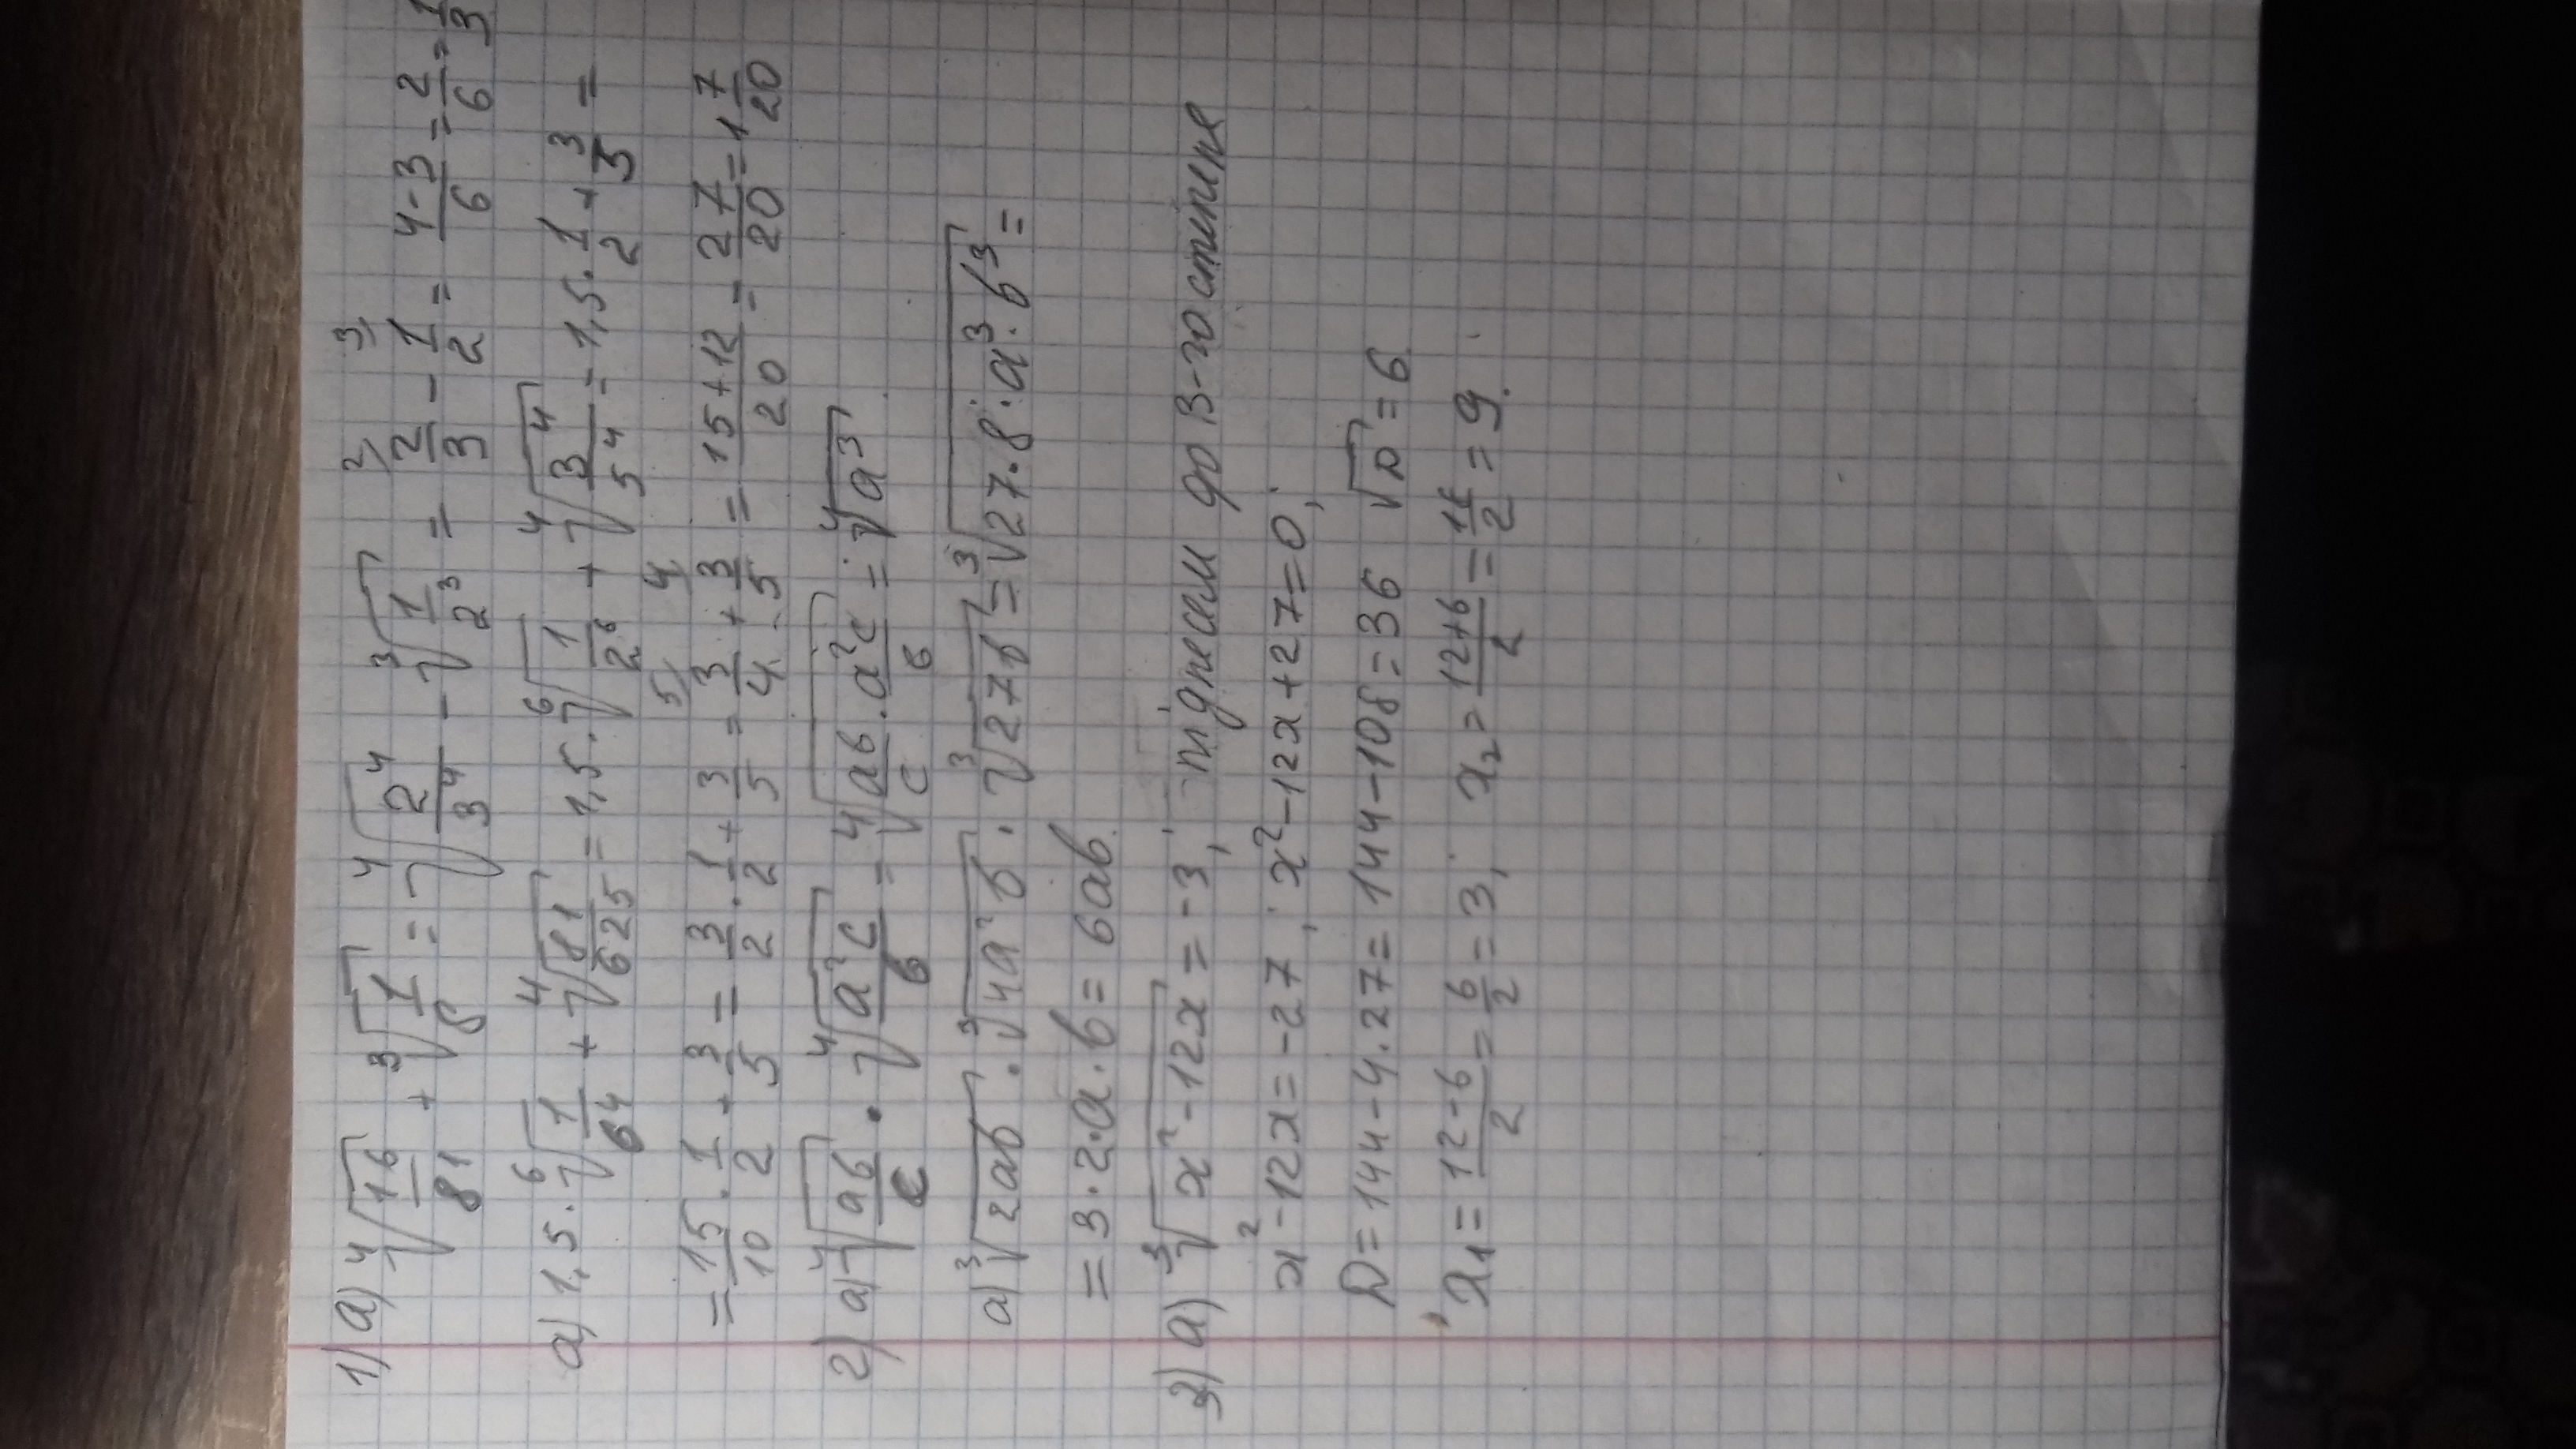 1) а) ⁴√(16/81) + ³√(1/8) = ⁴√(2⁴/3⁴) - ³√(1/2³) = 2/3 - 1/2 = (4-3)/6 = 2/6 = 1/3
а) 1,5 · ⁶√(1/64) + ⁴√(81/625) = 1,5 · ⁶√(1/2⁶) + ⁴√(3⁴/5⁴) = 1,5 · 1/2 + 3/5 =
= 15/10 · 1/2 + 3/5 = 3/2 · 1/2 + 3/5 = 3/4 + 3/5 = (15+12)/20 = 27/20 = 1 7/20
2) а) ⁴√(ab/c) · ⁴√(a²c/b) = ⁴√(ab/c · a²c/b) = ⁴√a³
а) ³√2ab · ³√4a²b · ³√27b = ³√27·8·a³·b³ =
= 3·2·a·b = 6ab.
3) а) ³√x²-12x = -3; піднесем до 3-го степеня
x²-12x = -27; x²-12x+27=0;
D = 144-4·27 = 144-108 = 36 √D = 6
x₁ = (12-6)/2 = 6/2 = 3; x₂ = (12+6)/2 = 18/2 = 9.